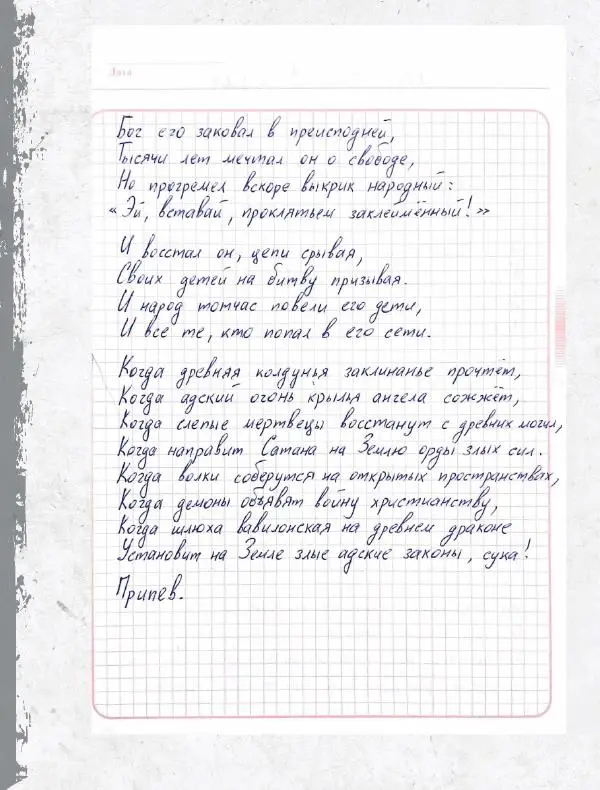 Дата
Бог его заковал в преисподней,
Тысячи лет мечтал он о свободе,
Но прогремел вскоре выкрик народный:
«Эй, вставай, проклятьем заклеймённый!»
И восстал он, цепи срывая,
Своих детей на битву призывая.
И народ тотчас повели его дети,
И все те, кто попал в его сети.
Когда древняя колдунья заклинанье прочтёт,
Когда адский огонь крылья ангела сожжёт,
Когда слепые мертвецы восстанут с древних могил,
Когда направит Сатана на Землю орды злых сил.
Когда волки соберутся на открытых пространствах,
Когда демоны объявят войну христианству,
Когда шлюха вавилонская на древнем драконе
Установит на Земле злые адские законы, сука!
Припев.